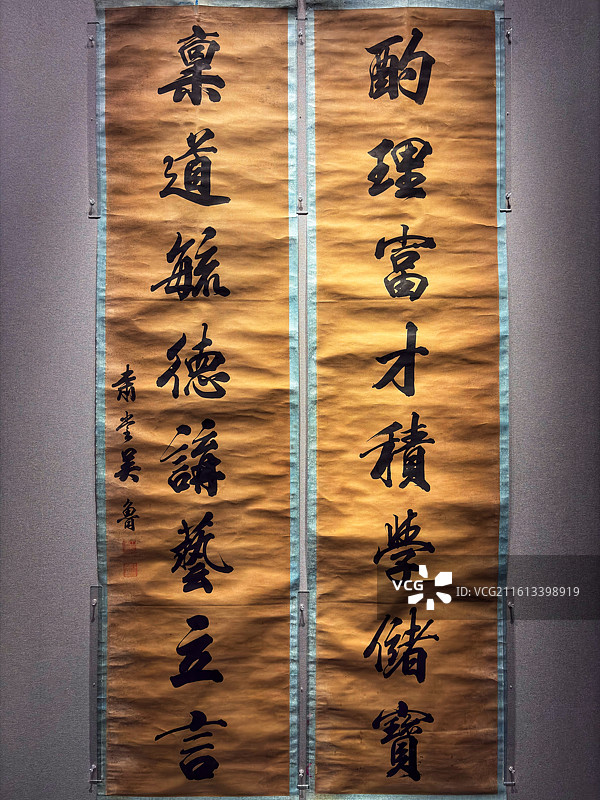 酌理富才積學儲寶
稟道毓德講藝立言
肅堂吴魯
VCG
ID:VCG211613398919